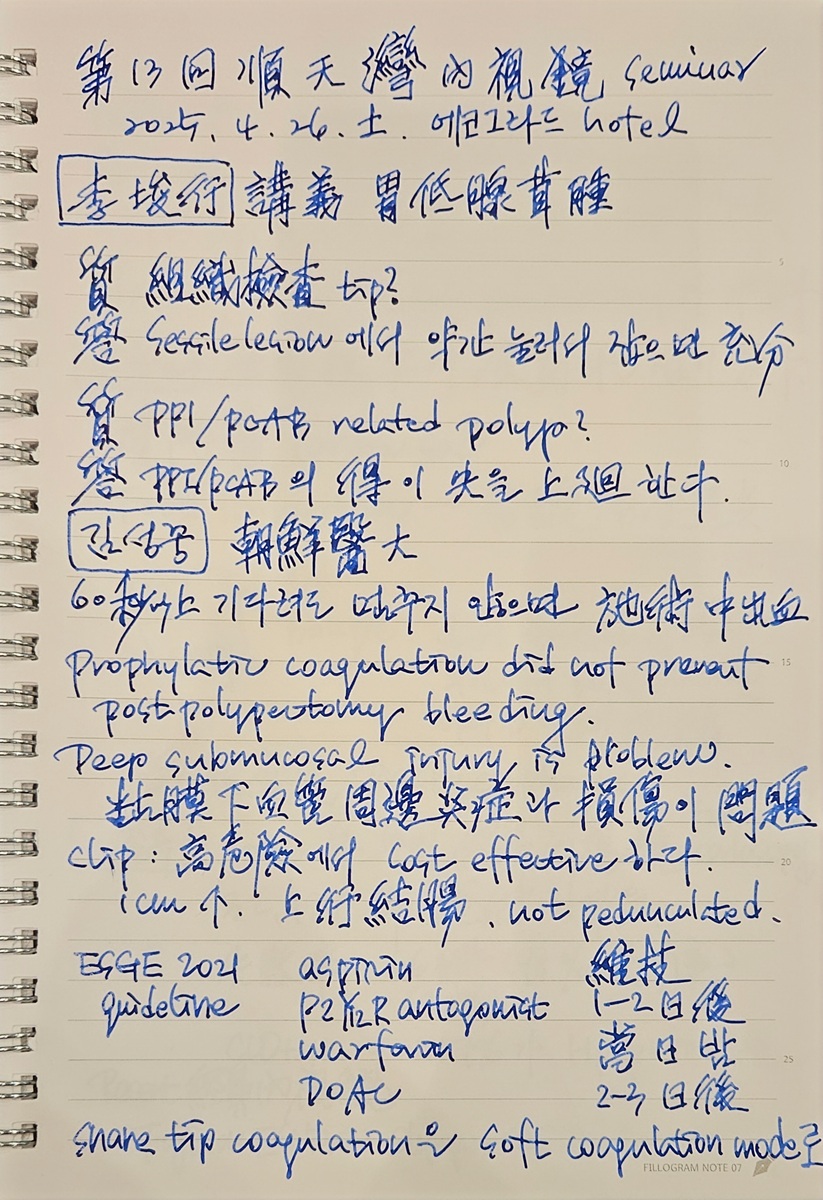 第13回 順天灣 內視鏡 seminar
2025. 4. 26. 土. 에코그라드 hotel
李埈行 講義 胃底腺茸腫
質 組織檢查 tip?
答 Sessile lesion에서 약간 눌러서 잡으면 充分
質 PPI/PCAB related polyp?
答 PPI/PCAB의 得이 失을 上廻한다.
김성중 朝鮮醫大
60秒以上 기다려도 멈추지 않으면 施術中出血
prophylatic coagulation did not prevent
postpolypectomy bleeding.
Deep submucosal injury is problem.
粘膜下血管周邊炎症과 損傷이 問題
clip : 高危險에서 cost effective하다.
1cm 个. 上行結腸, not pedunculated.
ESGE 2021 aspirin 維持
guideline P2Y12R antagonist 1-2日後
warfarin 當日 밤
DOAC 2-3日後
snare tip coagulation은 soft coagulation mode로
5
10
15
20
25
FILLOGRAM NOTE 07